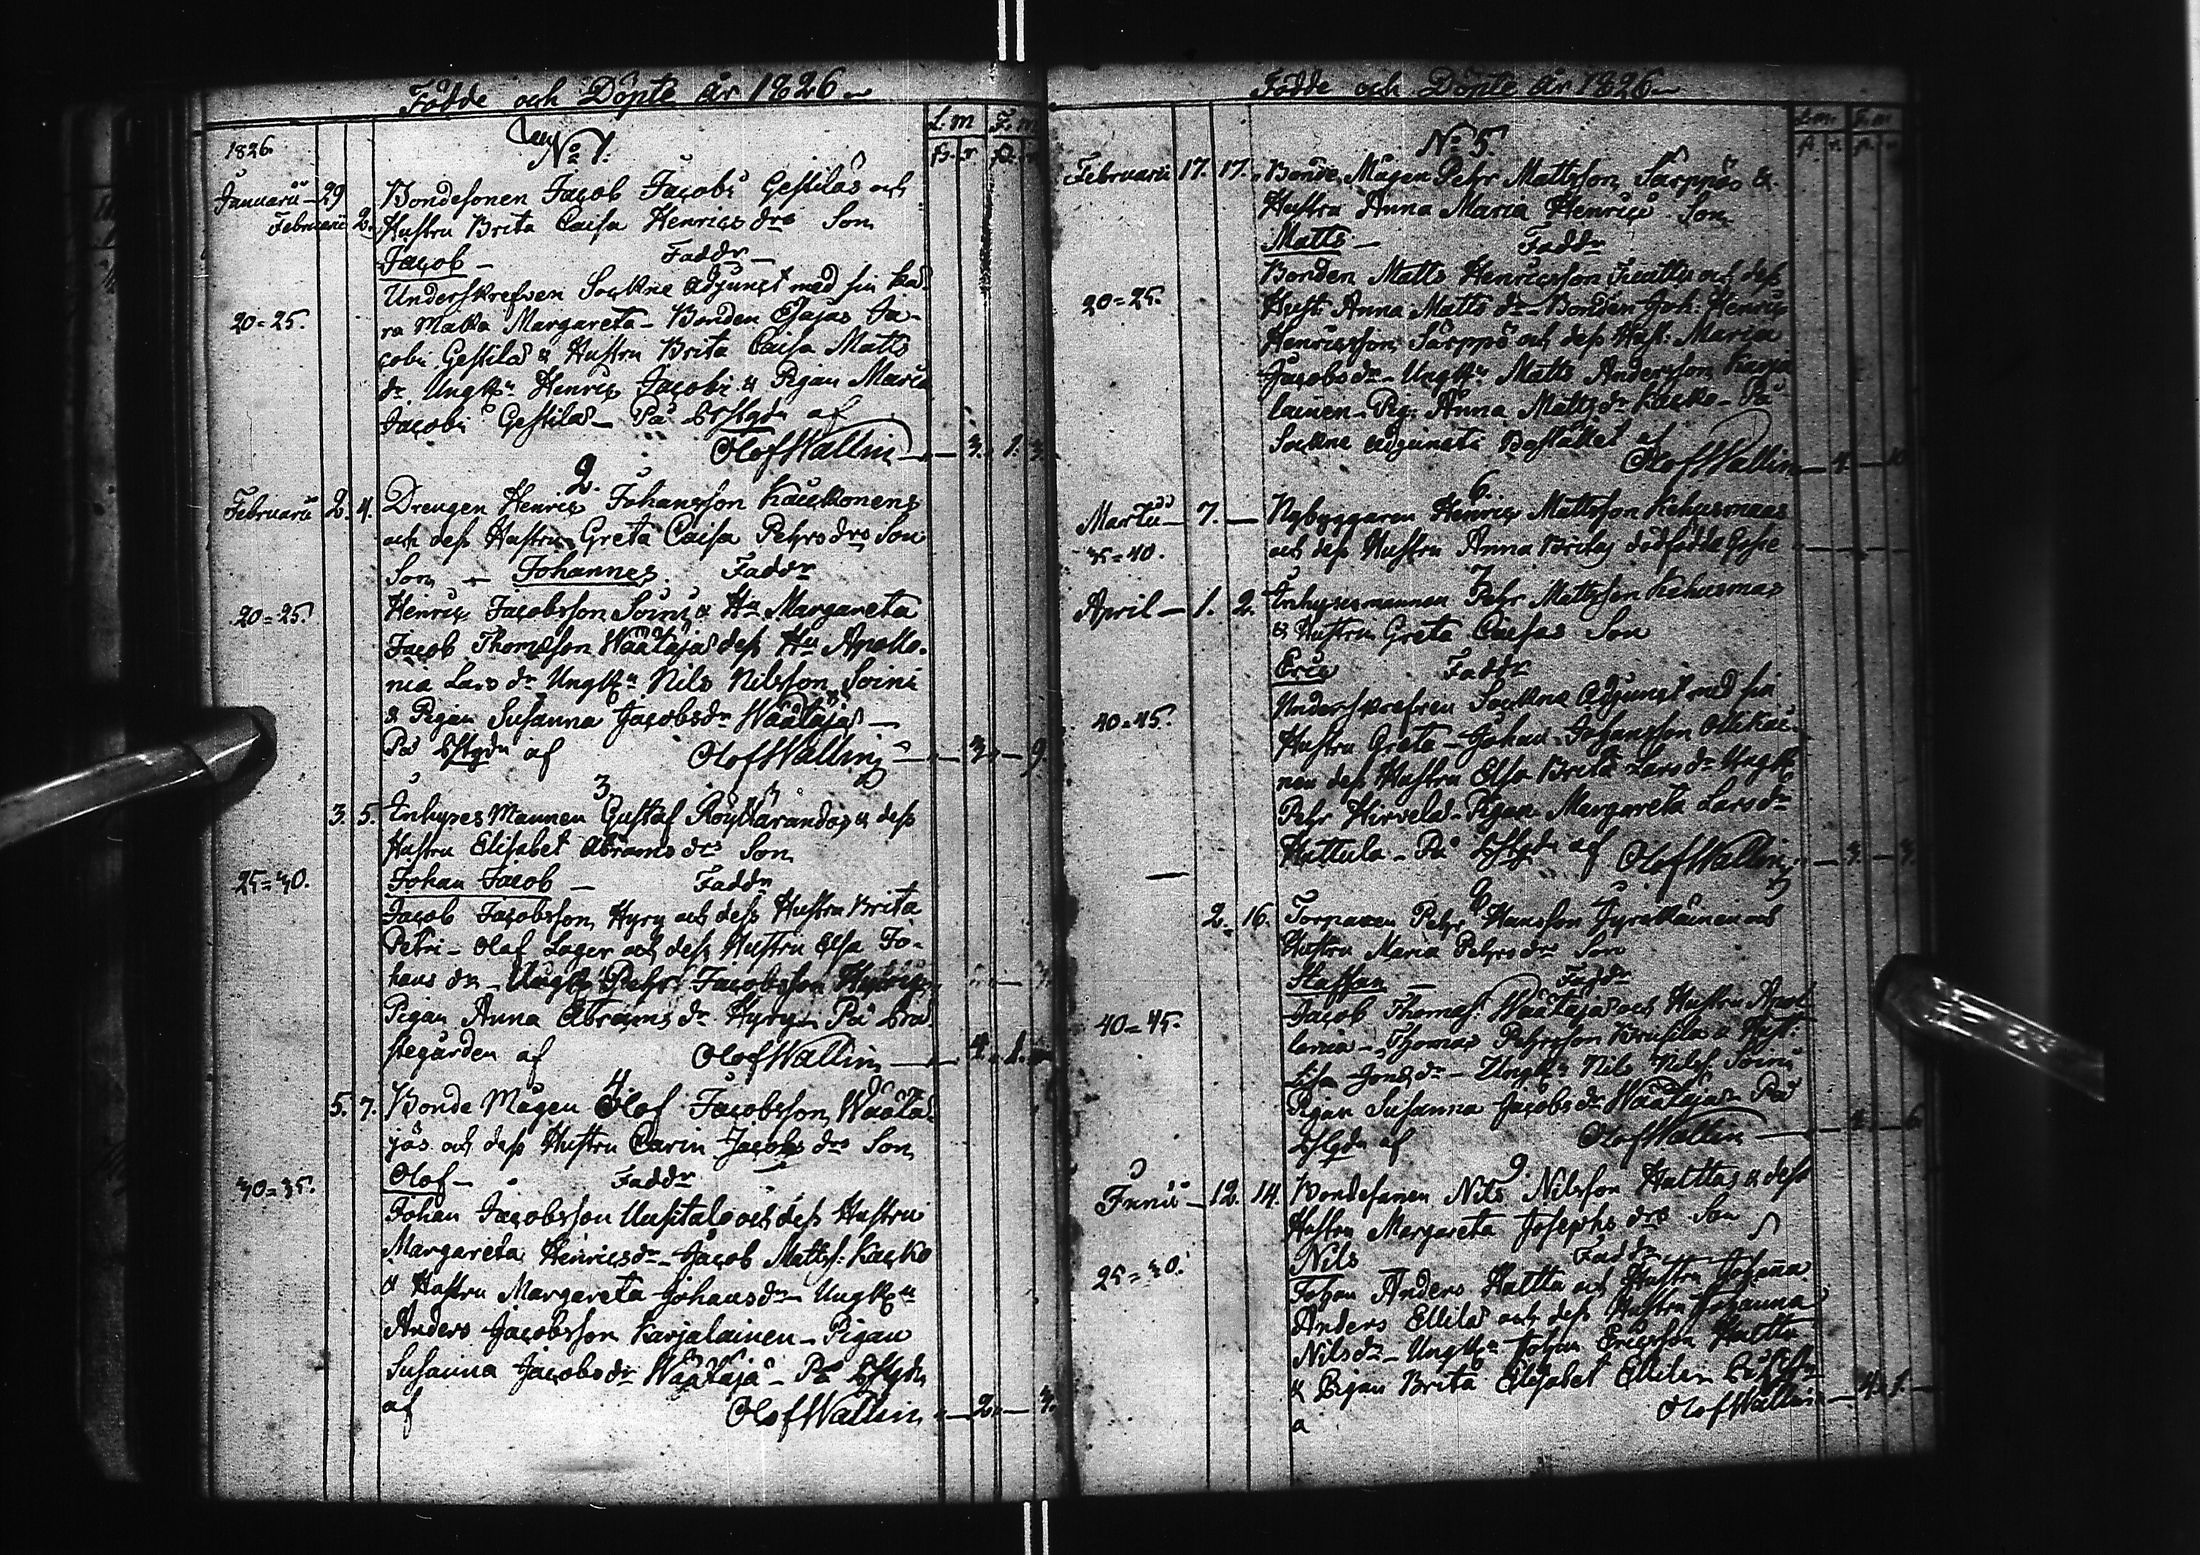 Födde och Döpte år 1826
L. m F. m
1826
No 1.
Januarii 29 Bondesonen Jacob Jacobi Gestilös och
Februarii 2. Hustru Brita Caisa Henrics drs Son
Jacob — Faddr —
Underskrefven Sockne Adjunct med sin kä-
20=25. ra Maka Margareta — Bonden Esajas Ja-
cobi Gestilä & Hustru Brita Caisa Matts
dr Ungk: Henric Jacobi & Pigan Maria
Jacobi Gestilä — På Pstgdn af
Olof Wallin — 3. 1. 3
2.
Februarii 2. 4. Drengen Henric Johansson Kauckonens
och dess Hustru Greta Caisa Pehrs drs Son
Son — Johannes Faddr
20=25. Henric Jacobsson Soini & Hu Margareta
Jacob Thomasson Wäätäjä dess Hu Apollo-
nia Lars dr Ungk: Nils Nilsson Soini
& Pigan Susanna Jacobsdr Wäätäjä —
På Pstgdn af Olof Wallin — 3. — 9.
3.
3. 5. Inhyses Mannen Gustaf & dess
Hustru Elisabet Abrams drs Son
25=30. Johan Jacob — Faddr
Jacob Jacobsson Hyry och dess Hustru Brita
Petri — Olof Lager och dess Hustru Elsa Jo-
hans dr — Ungk: Pehr Jacobsson
Pigan Anna Abrams dr Hyry — På Prä-
stegården af Olof Wallin — 4. 1.
4.
5. 7. Bonde Mågen Olof Jacobsson Wäätä-
jäs och dess Hustru Carin Jacobs drs Son
30=35. Olof — Faddr
Johan Jacobsson Uusitalo och dess Hustru
Margareta Henricsdr — Jacob Mattss: Kacko
& Hustru Margareta Johansdr — Ungk:
Anders Jacobsson Karjalainen — Pigan
Susanna Jacobsdr Wäätäjä — På Pstgdn
af Olof Wallin — 2. — 3.
Födde och Döpte år 1826
L. m. F. m
No 5.
Februarii 17. 17. Bonde Mågen Pehr Mattsson Särppös &
Hustru Anna Maria Henrics Son
Matts — Faddr
Bonden Matts Henricsson och dess
20=25. Hust: Anna Matts dr — Bonden Joh: Henric
Henricsson Särppö och dess Hust: Maria
Jacobsdr — Ungk: Matts Andersson Karja
lainen — Pig: Anna Mattsdr Kacko — På
Sockne Adjuncts Bostället af
Olof Wallin — 4. — 10
6.
Martii — 7. — Nybyggaren Henric Mattsson Kehusmaas
35=40. och dess Hustru Anna Britas dödfödde Gosse
7.
April — 1. 2. Inhysesmannen Pehr Mattsson Kehusmas
& Hustru Greta Caisas Son
Eric Faddr
Underskrefven Sockne Adjunct med sin
40=45. Hustru Greta — Johan Johansson
nen dess Hustru Elsa Brita Lars dr Ungk:
Pehr Hirvelä — Pigan Margareta Larsdr
Hattula — På Pstgdn af Olof Wallin — 3. — 3.
8
2. 16. Torparen Pehr Hansson och
Hustru Maria Pehrsdrs Son
Staffan — Faddr
40=45. Jacob Thomass: Wäätäjä och Hustru Apol
lonia — Thomas Pehrsson & Hust:
Lisa dr — Ungk: Nils Nilss: Soini
Pigan Susanna Jacobsdr Wäätäjä — På
Pstgdn af Olof Wallin — 2. — 6
9.
Junii — 12. 14. Bondesonen Nils Nilsson Hattus & dess
Hustru Margareta Josephs drs Son
Nils Faddr
25=30. Johan Anders Hattu och Hustru Johanna
Anders Ellilä och dess Hustru Johanna
Nilsdr — Ungk: Johan Ericsson Hattu
& Pigan Brita Elisabet Ellilä
a Olof Wallin — 4. 1. —